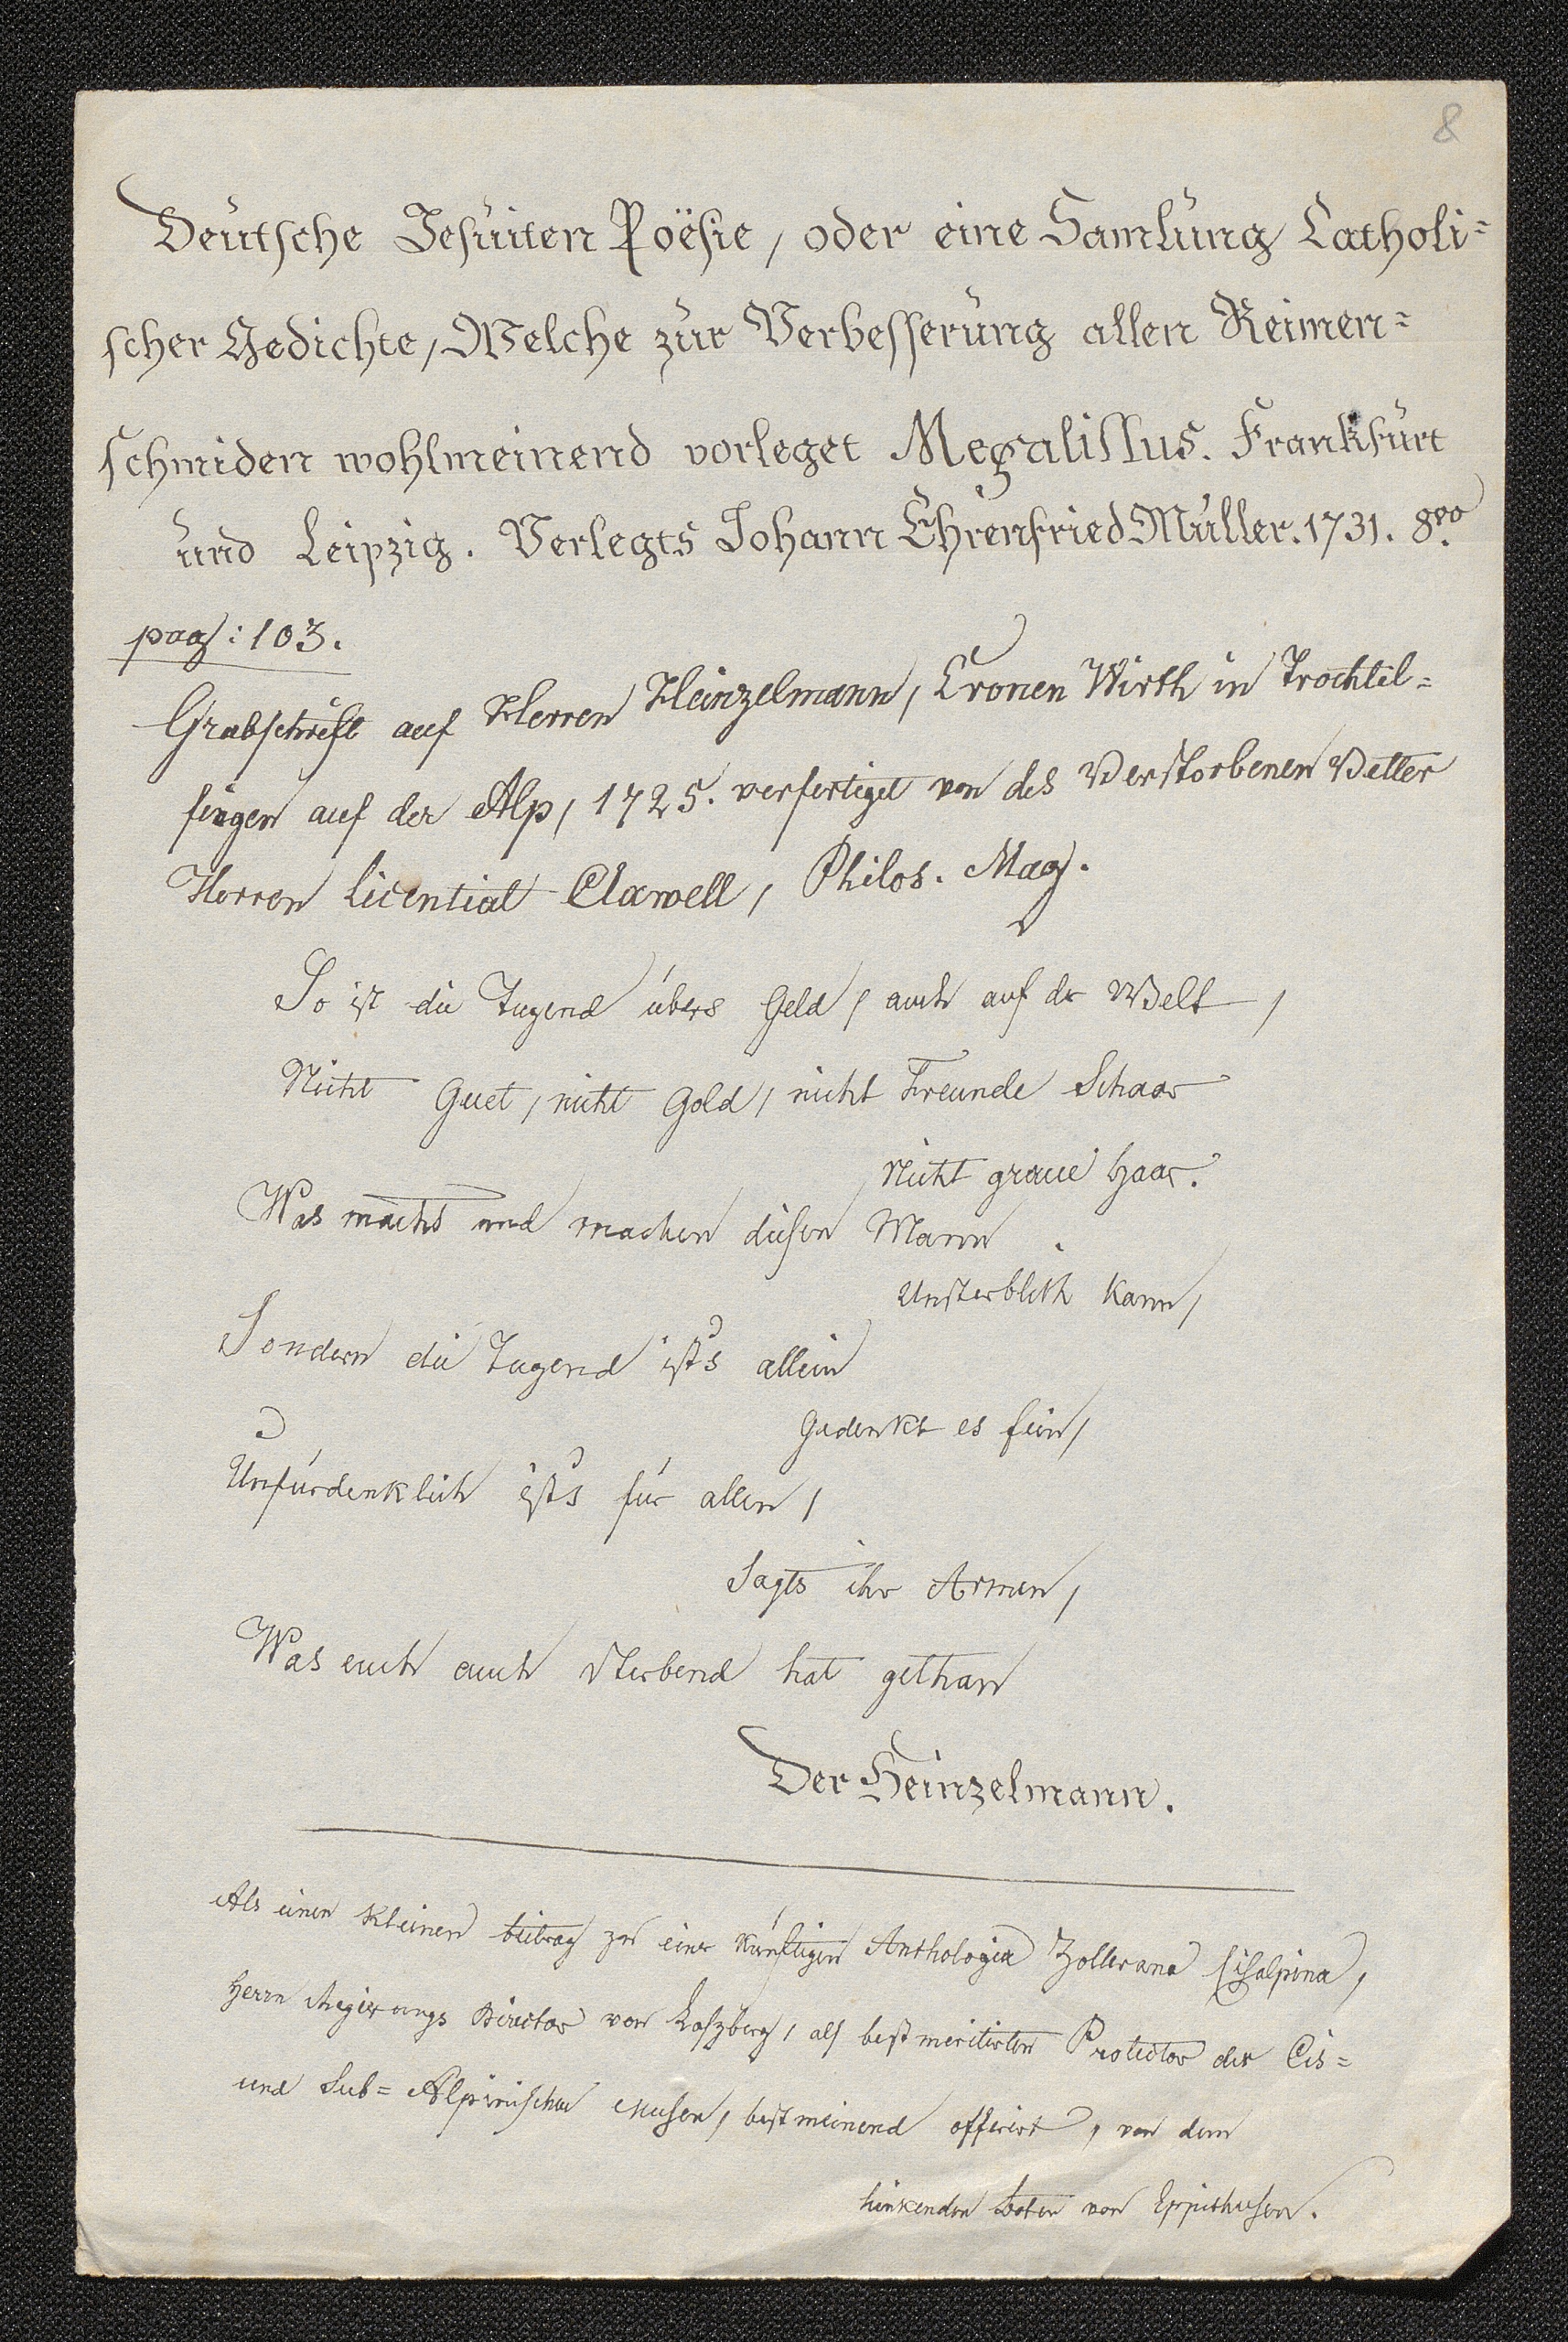 8
Deutsche Jesuiten Poësie, oder eine Samlung Catholi=
scher Gedichte, Welche zur Verbesserung allen Reimen=
schmiden wohlmeinend vorleget Megalissus. Frankfurt
und Leipzig. Verlegts Johann Ehrenfried Müller. 1731. 8vo.
pag: 103.
Grabschrift auf Herren Heinzelmann, Cronen Wirth in Trochtel=
fingen auf der Alp, 1725. verfertiget von des Verstorbenen Vetter
Herren Licentiat Claxwell, Philos. Mag.
So ist die Tugend übers Geld, auch auf der Welt,
Nicht Guet, nicht Gold, nicht Freunde Schaar
Nicht graue Haar.
Was machts und machen diesen Mann
Unsterblich kann,
Sondern die Tugend ist's allein
Gedenkt es fein,
Unfürdenklich ist's für allen,
Sagts ihr Armen,
Was euch auch sterbend hat gethan
Der Heinzelmann.
Als einen kleinen beitrag zu einer künftigen Anthologia Zollerana Cisalpina,
Herrn Regierungs Director von Laszberg, als bestmeritirten Protector der Cis=
und Sub=Alpinischen Musen, bestmeinend offerirt, von dem
hinkenden boten von Eppishusen.